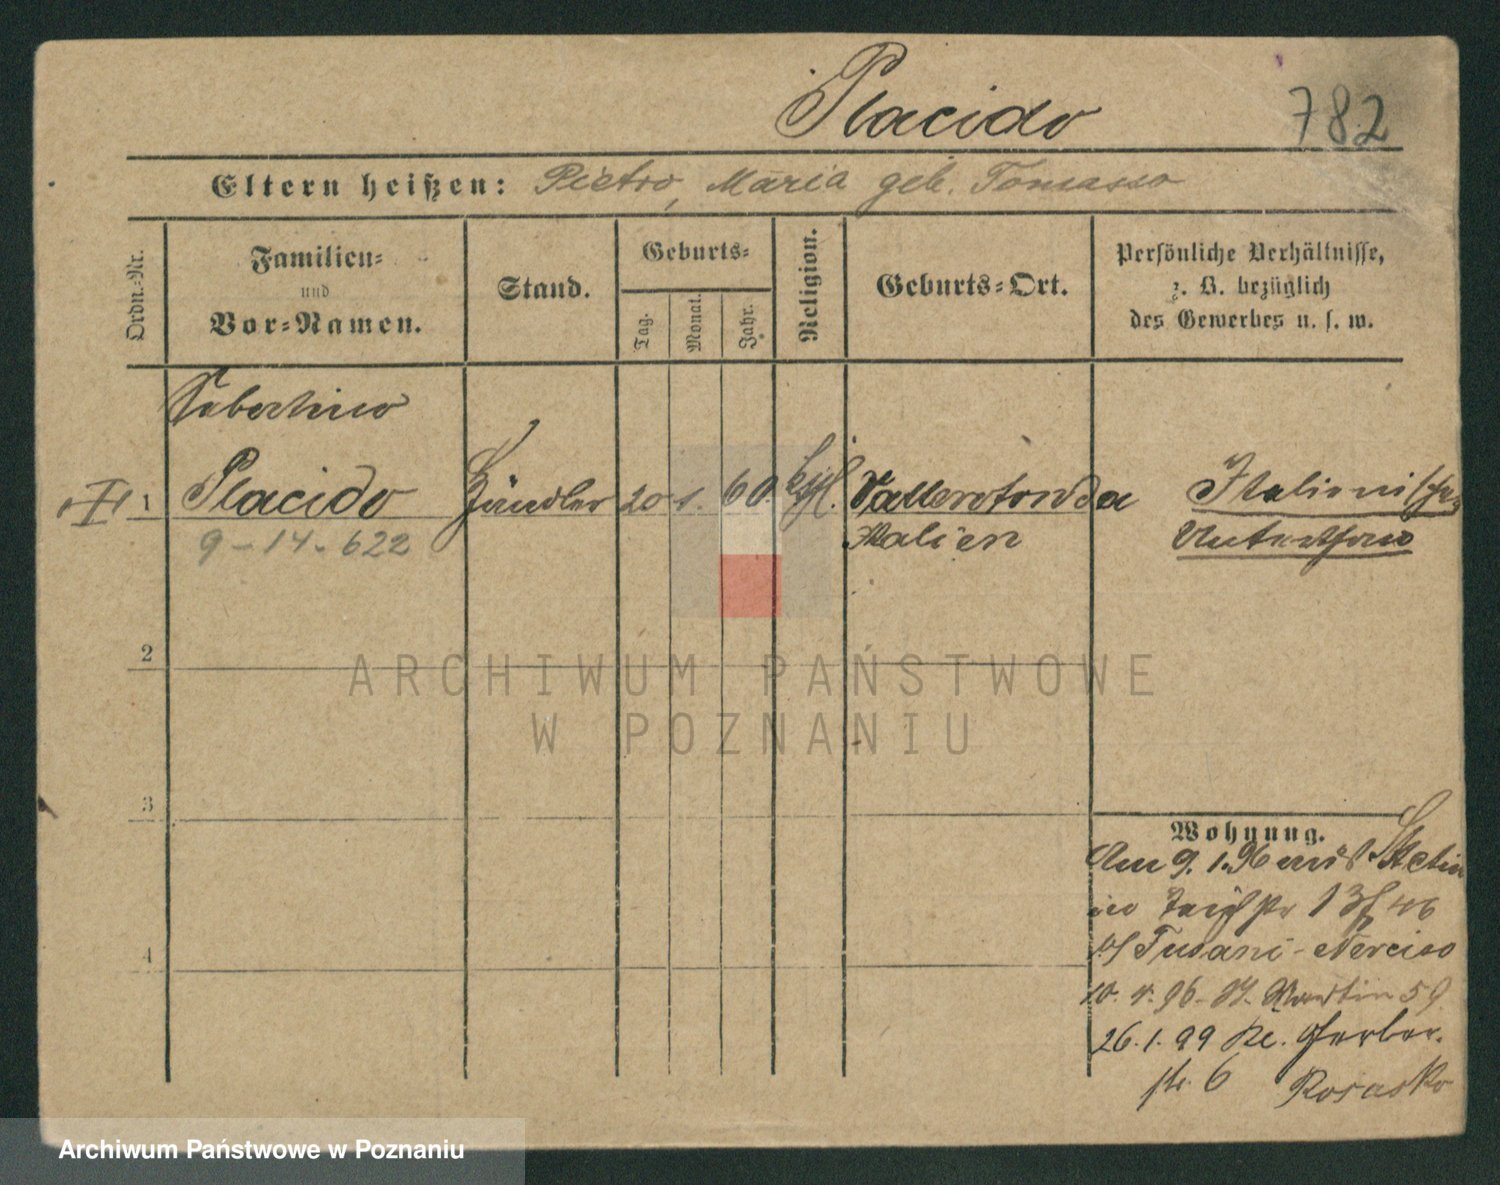 Placido 782
Eltern heißen: Pietro, Maria geb. Tomasso
Ordn.-Nr.
Familien-
und
Vor-Namen.
Stand.
Geburts-
Tag.
Monat.
Jahr.
Religion.
Geburts-Ort.
Persönliche Verhältnisse,
z. B. bezüglich
des Gewerbes u. s. w.
1 Placido Händler 20. 1. 60. kath. Vallerotonda Italienischer
9-14-622 Italien Unterthan
2
ARCHIWUM PAŃSTWOWE
W POZNANIU
3
Wohnung.
Am 9. 1. 96 aus Stettin
46
Tudani-Nerciso
10. 4. 96 - St. Martin 59
4
26. 1. 99 Kl. Gerber-
str. 6 Rosasko
Archiwum Państwowe w Poznaniu